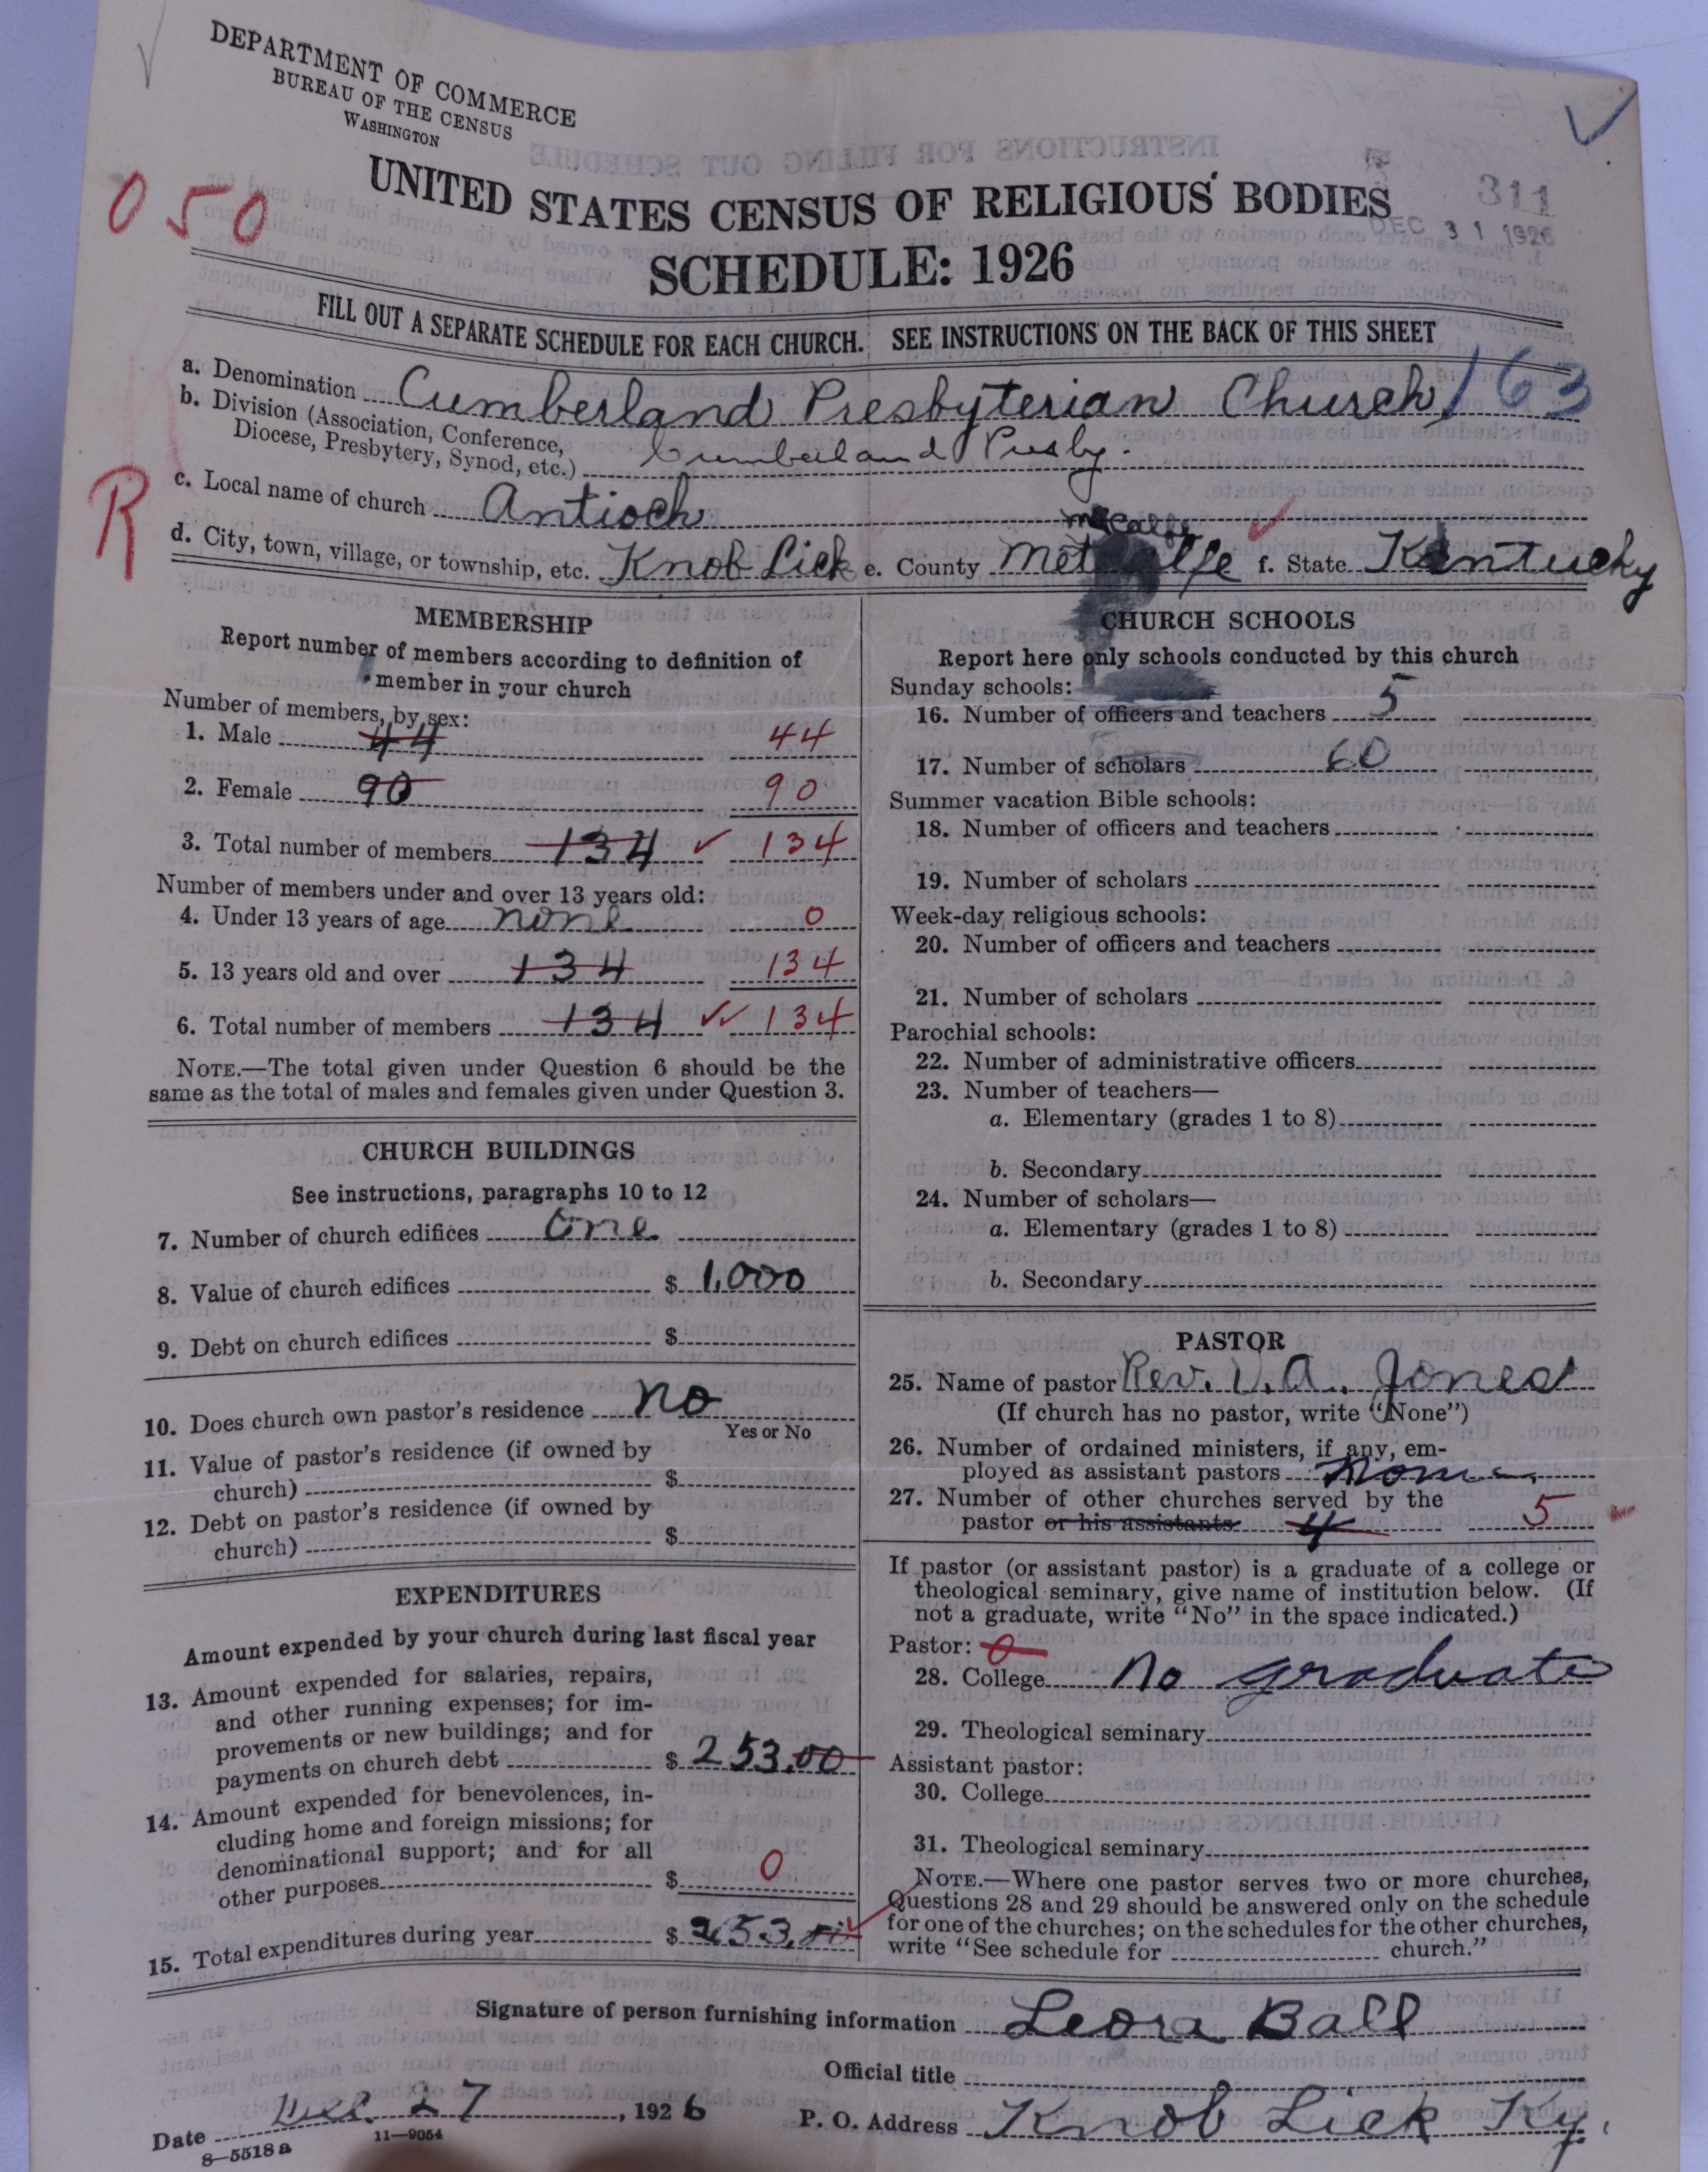 DEPARTMENT OF COMMERCE
BUREAU OF THE CENSUS
WASHINGTON
050
311
DEC 31 1926
UNITED STATES CENSUS OF RELIGIOUS BODIES
SCHEDULE: 1926
FILL OUT A SEPARATE SCHEDULE FOR EACH CHURCH. SEE INSTRUCTIONS ON THE BACK OF THIS SHEET
a. Denomination Cumberland Presbyterian Church 163
b. Division (Association, Conference,
Diocese, Presbytery, Synod, etc.) Cumberland Presby.
R
c. Local name of church Antioch
Metcalfe
d. City, town, village, or township, etc. Knob Lick e. County Metcalfe f. State Kentucky
MEMBERSHIP
Report number of members according to definition of
member in your church
Number of members, by sex:
1. Male 44 44
2. Female 90 90
3. Total number of members 134 134
Number of members under and over 13 years old:
4. Under 13 years of age none 0
5. 13 years old and over 134 134
6. Total number of members 134 134
NOTE.—The total given under Question 6 should be the
same as the total of males and females given under Question 3.
CHURCH BUILDINGS
See instructions, paragraphs 10 to 12
7. Number of church edifices One
8. Value of church edifices $ 1,000
9. Debt on church edifices $
10. Does church own pastor's residence no
Yes or No
11. Value of pastor's residence (if owned by
church) $
12. Debt on pastor's residence (if owned by
church) $
EXPENDITURES
Amount expended by your church during last fiscal year
13. Amount expended for salaries, repairs,
and other running expenses; for im-
provements or new buildings; and for
payments on church debt $ 253.00
14. Amount expended for benevolences, in-
cluding home and foreign missions; for
denominational support; and for all
other purposes $ 0
15. Total expenditures during year $ 253.00
CHURCH SCHOOLS
Report here only schools conducted by this church
Sunday schools:
16. Number of officers and teachers 5
17. Number of scholars 60
Summer vacation Bible schools:
18. Number of officers and teachers
19. Number of scholars
Week-day religious schools:
20. Number of officers and teachers
21. Number of scholars
Parochial schools:
22. Number of administrative officers
23. Number of teachers—
a. Elementary (grades 1 to 8)
b. Secondary
24. Number of scholars—
a. Elementary (grades 1 to 8)
b. Secondary
PASTOR
25. Name of pastor Rev. V. A. Jones
(If church has no pastor, write "None")
26. Number of ordained ministers, if any, em-
ployed as assistant pastors None
27. Number of other churches served by the
pastor or his assistants 4 5
If pastor (or assistant pastor) is a graduate of a college or
theological seminary, give name of institution below. (If
not a graduate, write "No" in the space indicated.)
Pastor: 0
28. College no graduate
29. Theological seminary
Assistant pastor:
30. College
31. Theological seminary
NOTE.—Where one pastor serves two or more churches,
Questions 28 and 29 should be answered only on the schedule
for one of the churches; on the schedules for the other churches,
write "See schedule for church."
Signature of person furnishing information Leora Ball
Official title
Date Dec. 27, 1926 P. O. Address Knob Lick Ky.
8—5518a 11—9054